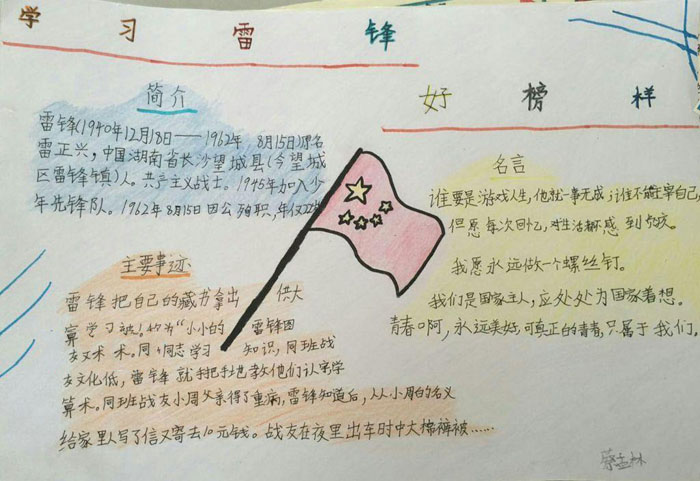 学习雷锋
好榜样
简介
雷锋(1940年12月18日——1962年8月15日)原名
雷正兴,中国湖南省长沙望城县(今望城
区雷锋镇)人。共产主义战士。1945年加入少
年先锋队。1962年8月15日因公殉职,年仅22
主要事迹
雷锋把自己的藏书拿出 供大
学习被 为“小小的 雷锋图
术。同 同志学习 知识,同班战
友文化低,雷锋就手把手地教他们认字学
算术。同班战友小周父亲得了重病,雷锋知道后,从小周的名义
给家里人写了信又寄去10元钱。战友在夜里出车时中大棉裤被……
名言
谁要是游戏人生,他就一事无成;谁不能主宰自己,
但愿每次回忆,对生活都感到
我愿永远做一个螺丝钉。
我们是国家主人,应处处为国家着想。
青春啊,永远美好,可真正的青春,只属于我们。